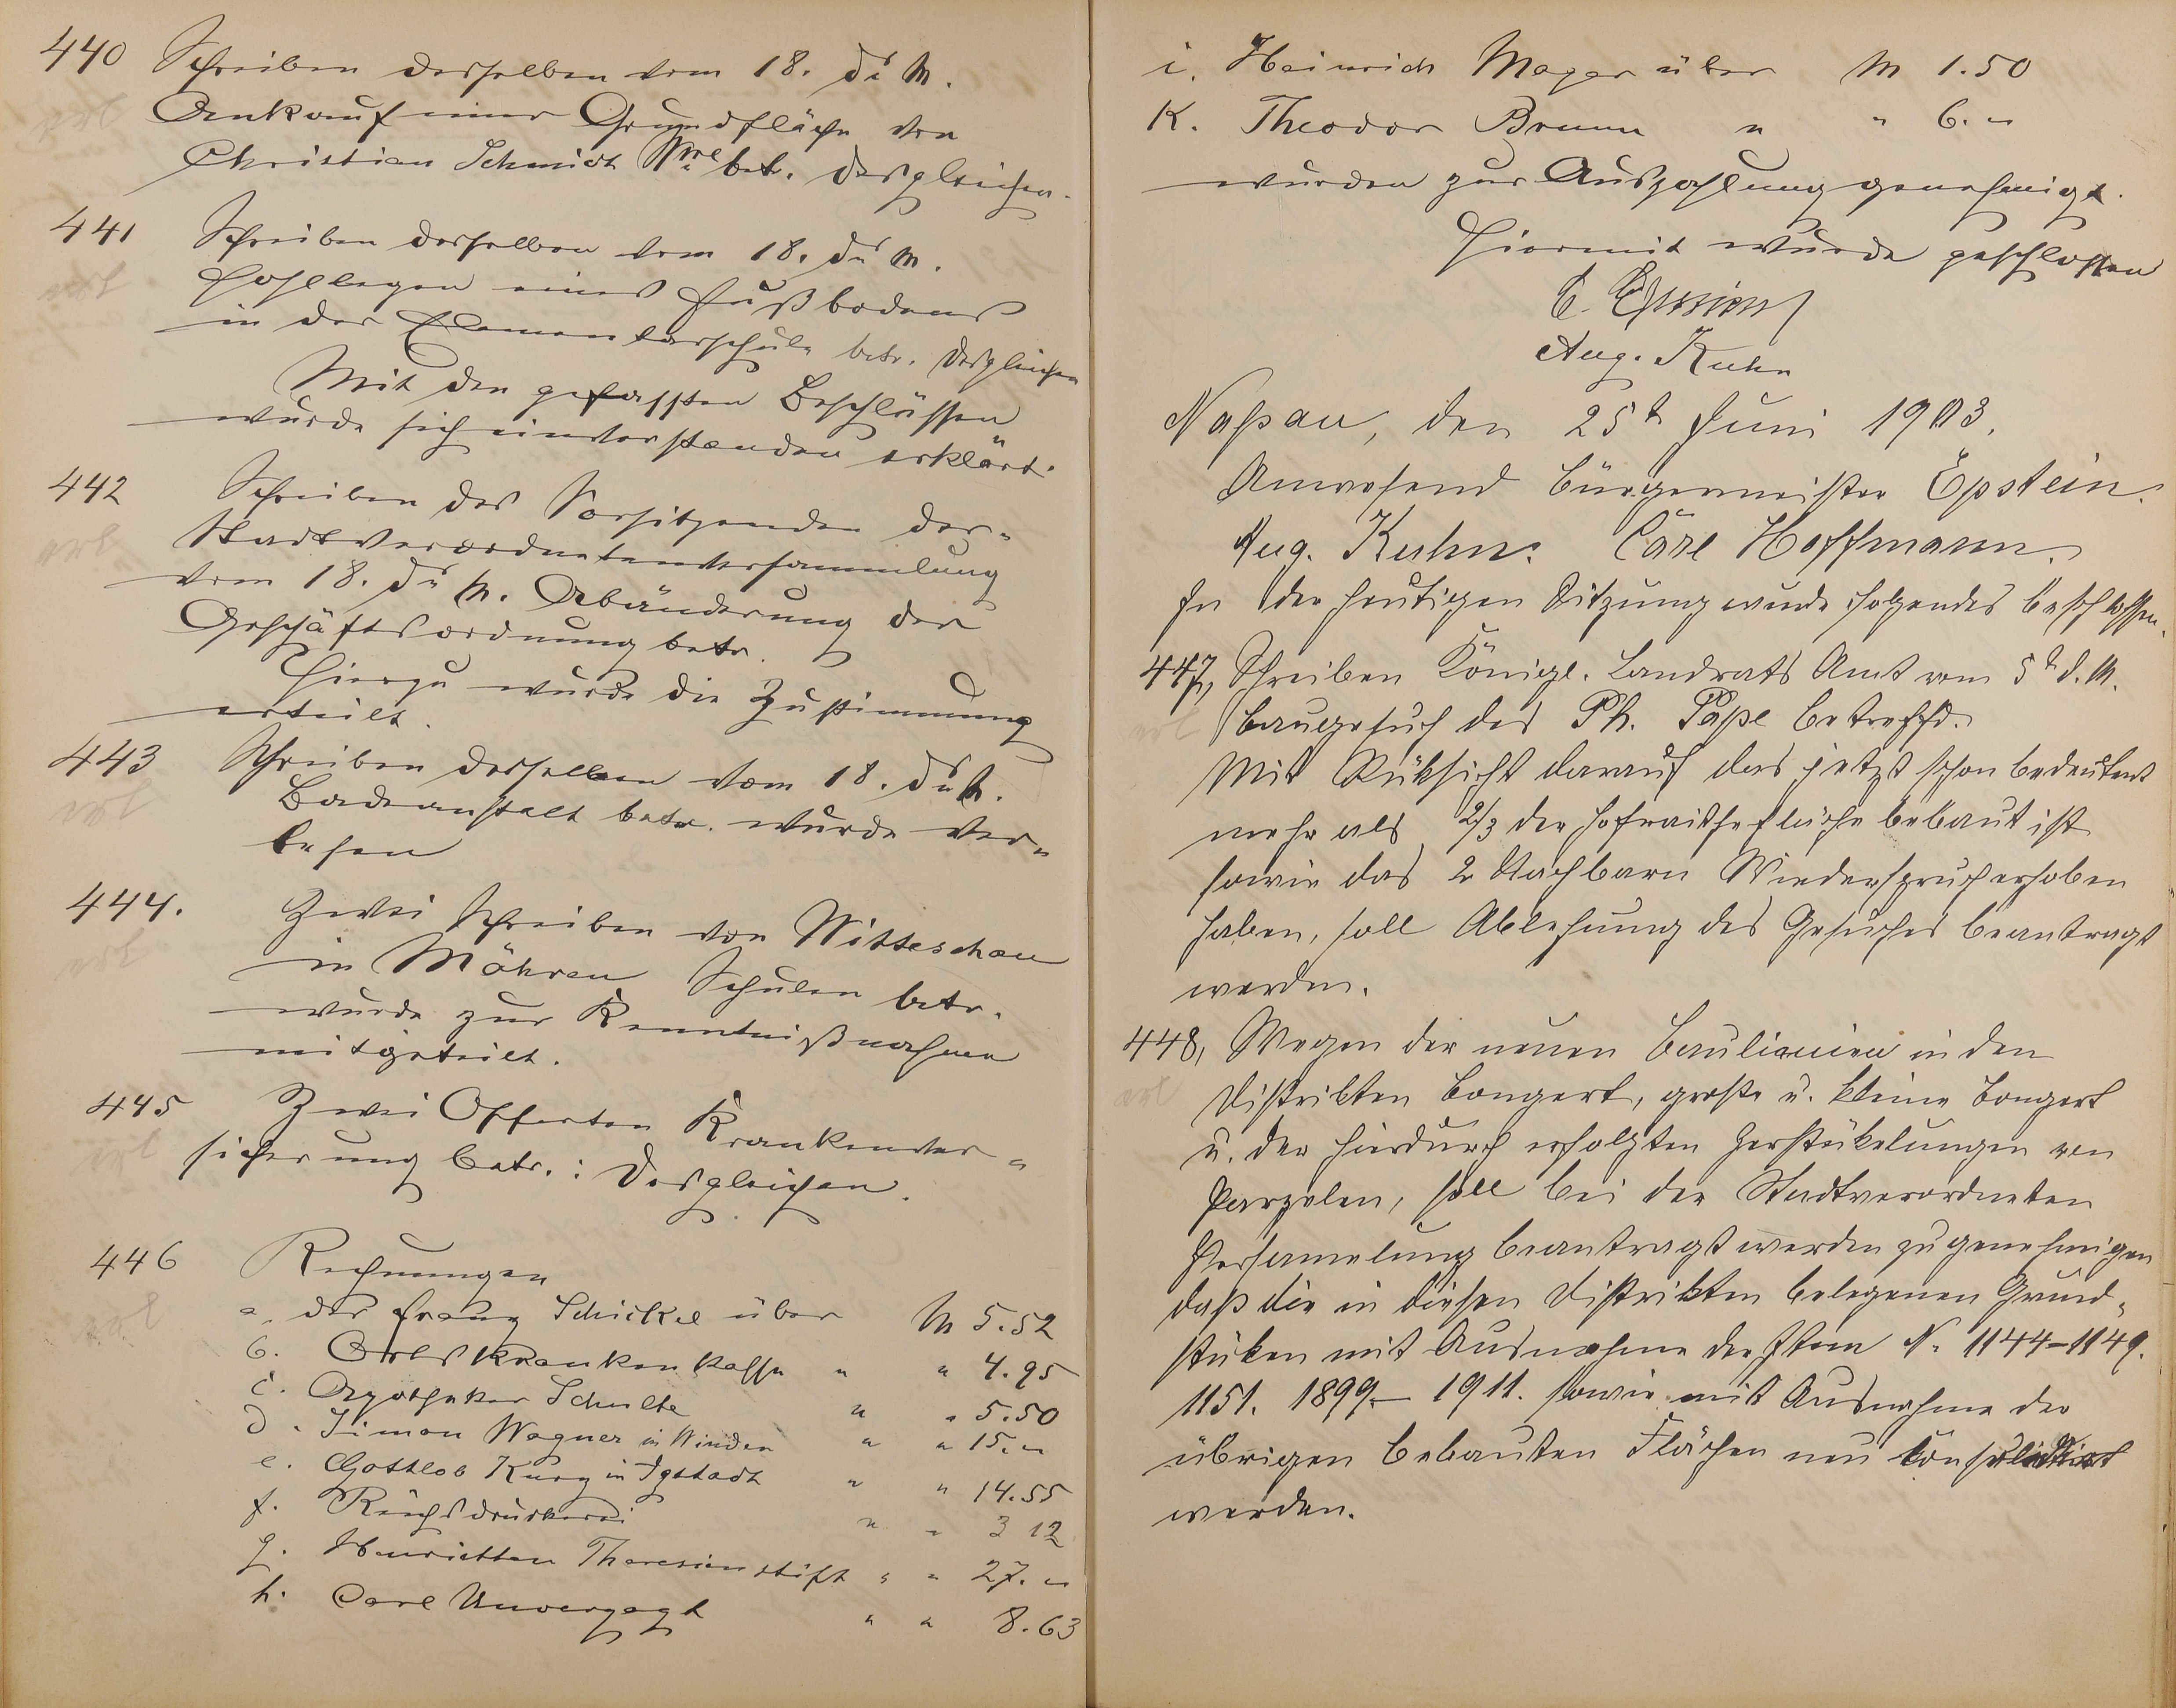 440 Schreiben desselben vom 18. ds M.
Ankauf einer Grundfläche von
Christian Schmidt Wwe betr. desgleichen.
erl
441 Schreiben desselben vom 18. ds M.
Hohllegen eines Fußbodens
erl
in der Elementarschule betr. desgleichen
Mit den gefassten Beschlüssen
wurde sich einverstanden erklärt.
442 Schreiben des Vorsitzenden der=
Stadtverordnetenversammlung
erl
vom 18. ds M. Abänderung der
Geschäftsordnung betr.
Hierzu wurde die Zustimmung
erteilt.
443 Schreiben desselben vom 18. ds M.
erl
Badeanstalt betr. wurde ver=
lesen
444. Zwei Schreiben von Witteschau
erl
in Mähren Schulen betr.
wurde zur Kenntnißnahme
mitgeteilt.
445 Zwei Offerten Krankenver=
erl
sicherung betr.: desgleichen.
446 Rechnungen
erl
a. der Franz Schickel über M 5.52
b. Ortskrankenkasse " " 4.95
c. Apotheker Schulte " " 5.50
d. Simon Wagner in Winden " " 15. "
e. Gottlob Kurz in Igstadt " " 14.55
f. Reichsdruckerei " " 3 12
g. Henrietten Theresienstift " " 27. "
h. Carl Unverzagt " " 8.63
i. Heinrich Mager über M 1.50
K. Theodor Brunn " " 6. "
wurden zur Auszahlung genehmigt.
Hiermit wurde geschlossen
Aug. Kuhn
Naßau, den 25t Juni 1903.
Anwesend Bürgermeister Epstein.
Aug. Kuhn. Carl Hoffmann.
In der heutigen Sitzung wurde folgendes beschlossen.
447, Schreiben Königl. Landrats Amt vom 5t d. M.
erl
Baugesuch des Ph. Pape betreffd.
Mit Rüksicht darauf das jetzt schon bedeutend
mehr als 2/3 der Hofraithefläche bebaut ist
sowie das 2 Nachbarn Wiederspruch erhoben
haben, soll Ablehnung des Gesuches beantragt
werden.
448, Wegen der neuen Baulinien in den
erl
Distrikten Bongert, große u. kleine Bongert
u. der hierdurch erfolgten Zerstükelungen von
Parzelen, soll bei der Stadtverordneten
Versamelung beantragt werden zu genehmigen
daß die in diesen Distrikten belegenen Grund=
stüken mit Ausnahme der Item No 1144-1149.
1151. 1899 - 1911. sowie mit Ausnahme der
übrigen bebauten Flächen neu konsolidirt
werden.